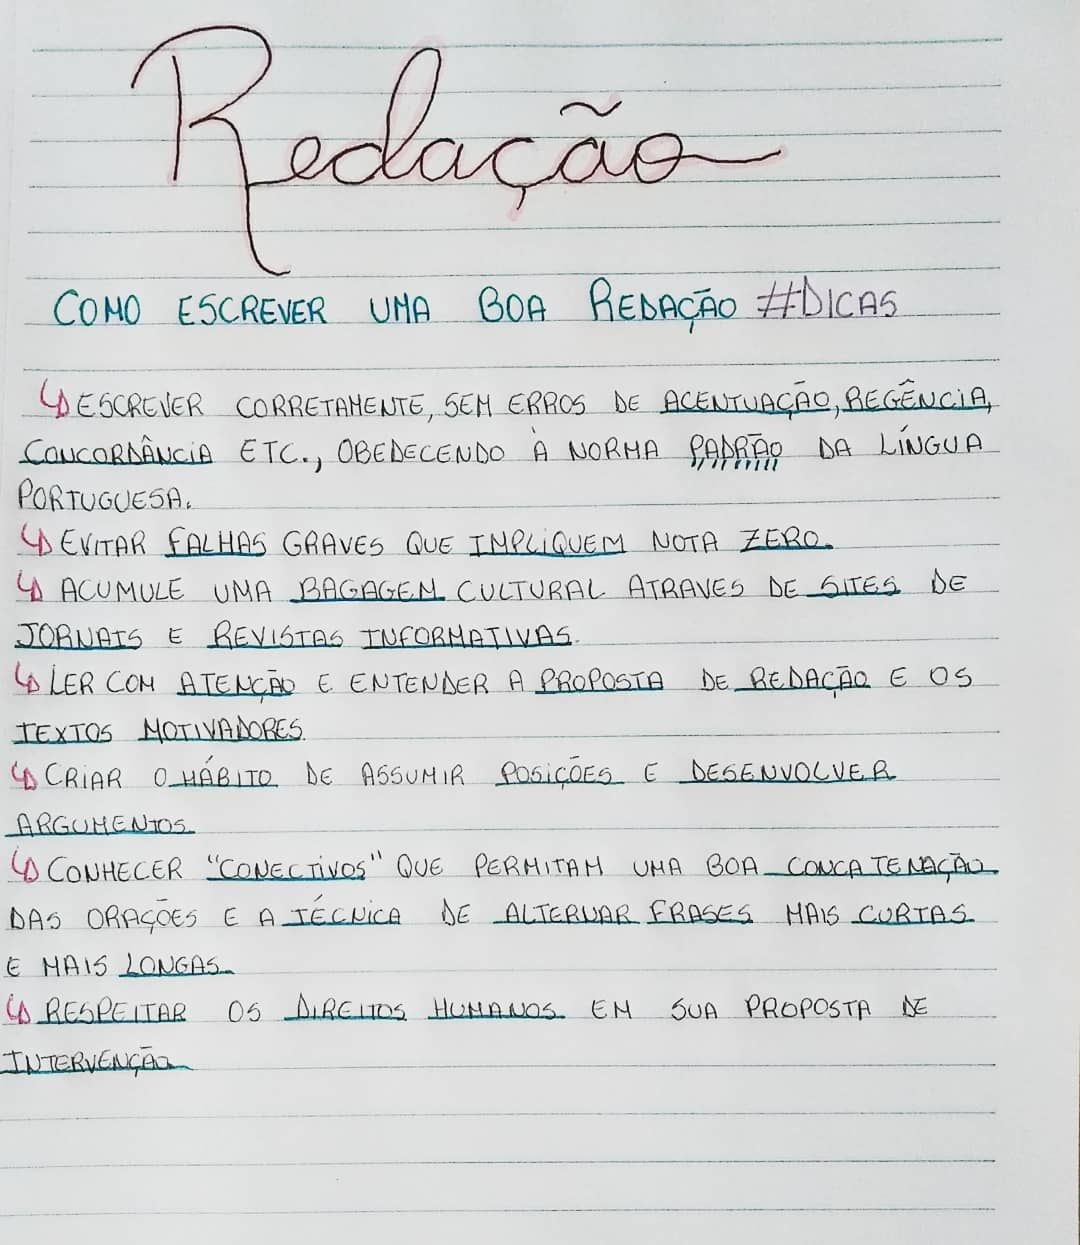 Redação
COMO ESCREVER UMA BOA REDAÇÃO #DICAS
↳ ESCREVER CORRETAMENTE, SEM ERROS DE ACENTUAÇÃO, REGÊNCIA,
CONCORDÂNCIA ETC., OBEDECENDO À NORMA PADRÃO DA LÍNGUA
PORTUGUESA.
↳ EVITAR FALHAS GRAVES QUE IMPLIQUEM NOTA ZERO.
↳ ACUMULE UMA BAGAGEM CULTURAL ATRAVES DE SITES DE
JORNAIS E REVISTAS INFORMATIVAS.
↳ LER COM ATENÇÃO E ENTENDER A PROPOSTA DE REDAÇÃO E OS
TEXTOS MOTIVADORES.
↳ CRIAR O HÁBITO DE ASSUMIR POSIÇÕES E DESENVOLVER
ARGUMENTOS.
↳ CONHECER "CONECTIVOS" QUE PERMITAM UMA BOA CONCATENAÇÃO
DAS ORAÇÕES E A TÉCNICA DE ALTERNAR FRASES MAIS CURTAS
E MAIS LONGAS.
↳ RESPEITAR OS DIREITOS HUMANOS EM SUA PROPOSTA DE
INTERVENÇÃO